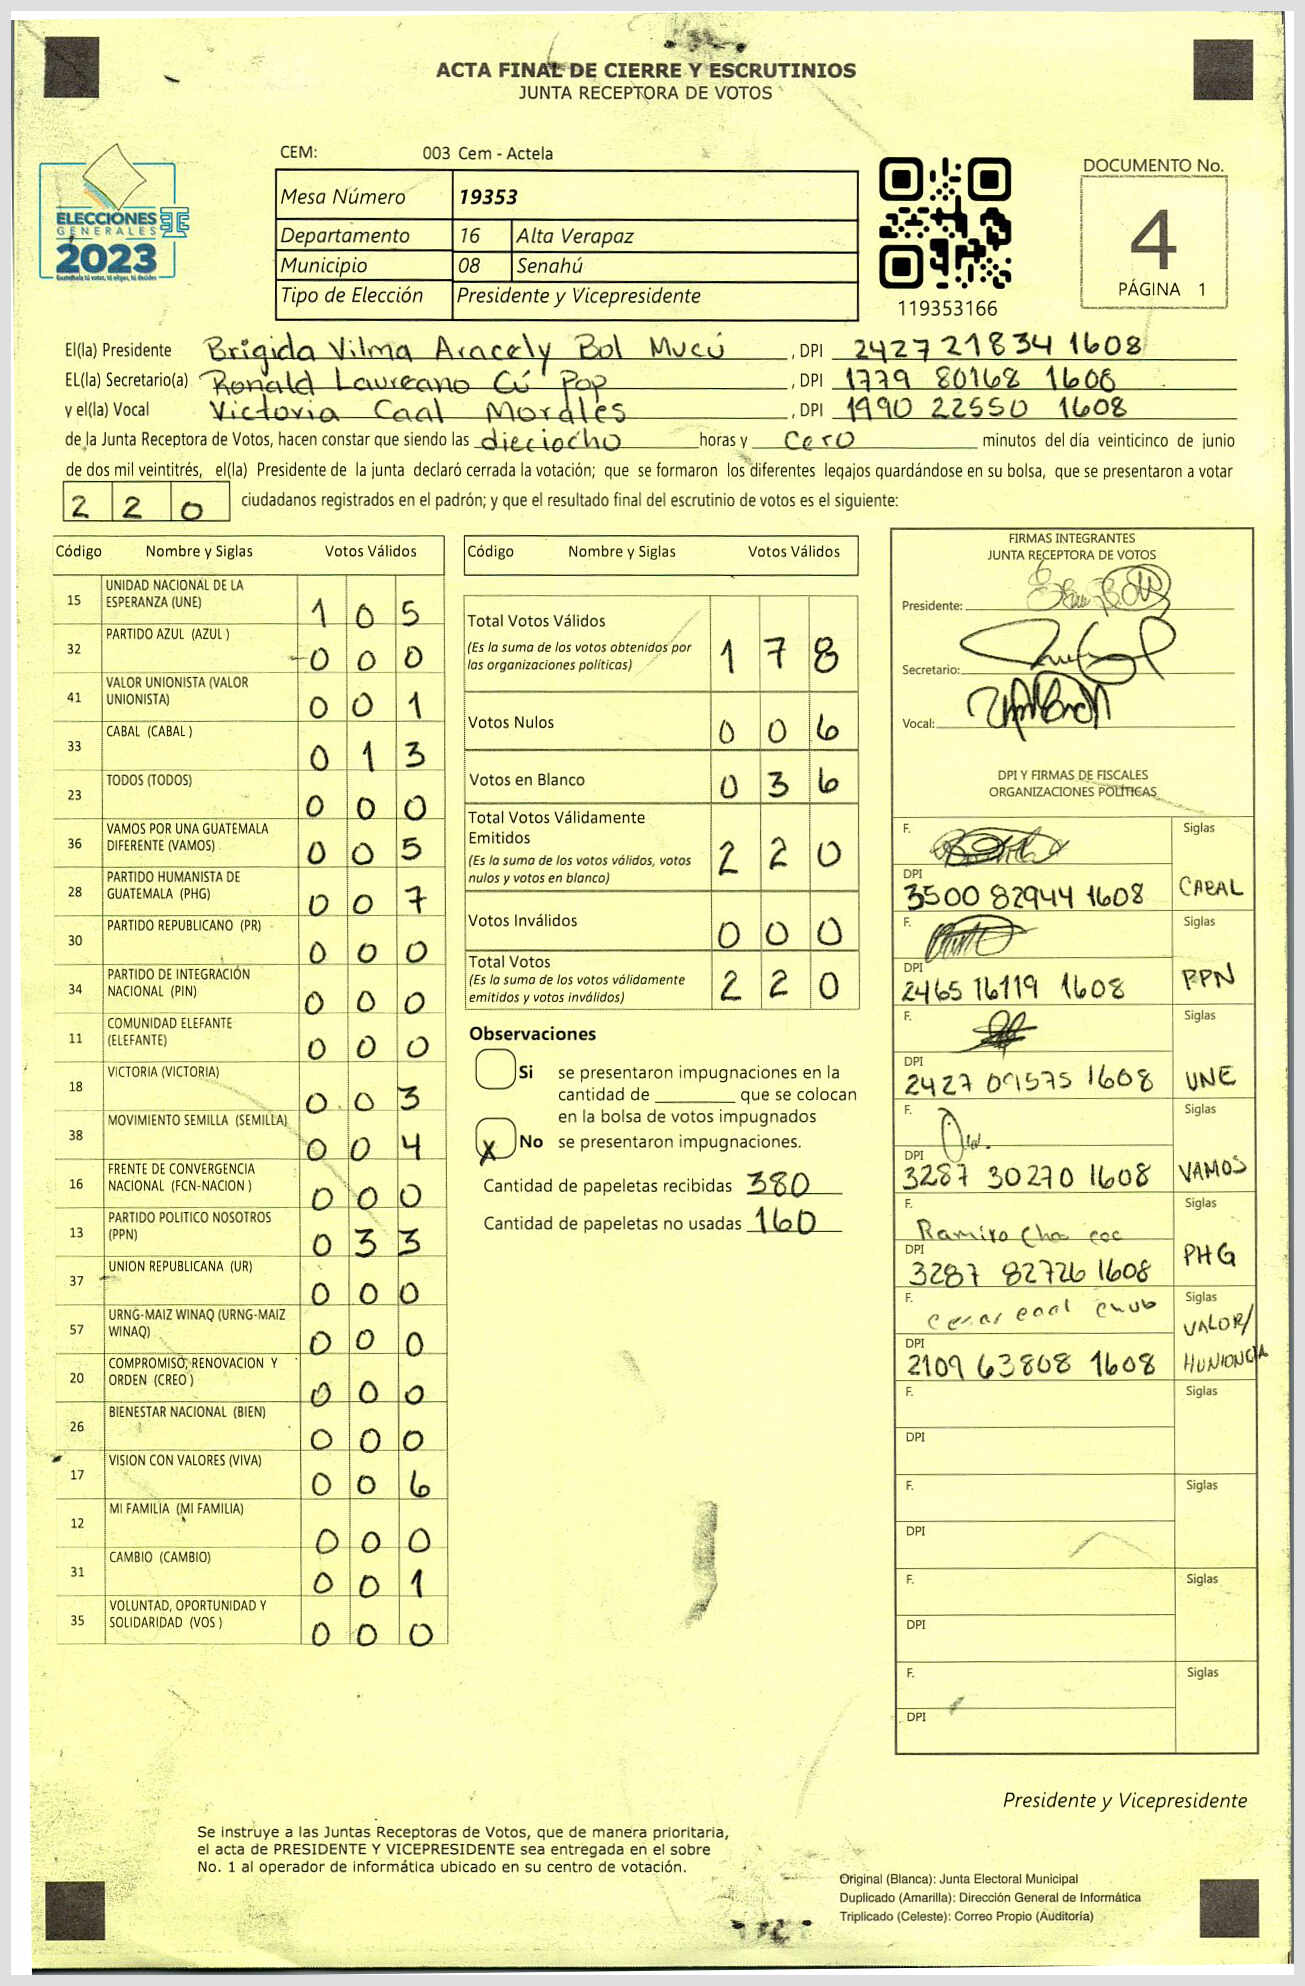 ACTA FINAL DE CIERRE Y ESCRUTINIOS
JUNTA RECEPTORA DE VOTOS
CEM: 003 Cem - Actela
ELECCIONES
GENERALES
2023
Guatemala tú votas, tú eliges, tú decides
Mesa Número 19353
Departamento 16 Alta Verapaz
Municipio 08 Senahú
Tipo de Elección Presidente y Vicepresidente
119353166
DOCUMENTO No.
4
PÁGINA 1
El(la) Presidente Brigida Vilma Aracely Bol Mucú , DPI 2427 21834 1608
EL(la) Secretario(a) Ronald Laureano Cú Pop , DPI 1779 80168 1608
y el(la) Vocal Victoria Caal Morales , DPI 1990 22550 1608
de la Junta Receptora de Votos, hacen constar que siendo las dieciocho horas y cero minutos del día veinticinco de junio
de dos mil veintitrés, el(la) Presidente de la junta declaró cerrada la votación; que se formaron los diferentes legajos guardándose en su bolsa, que se presentaron a votar
2 2 0 ciudadanos registrados en el padrón; y que el resultado final del escrutinio de votos es el siguiente:
Código Nombre y Siglas Votos Válidos
15 UNIDAD NACIONAL DE LA ESPERANZA (UNE) 1 0 5
32 PARTIDO AZUL (AZUL ) 0 0 0
41 VALOR UNIONISTA (VALOR UNIONISTA) 0 0 1
33 CABAL (CABAL ) 0 1 3
23 TODOS (TODOS) 0 0 0
36 VAMOS POR UNA GUATEMALA DIFERENTE (VAMOS) 0 0 5
28 PARTIDO HUMANISTA DE GUATEMALA (PHG) 0 0 7
30 PARTIDO REPUBLICANO (PR) 0 0 0
34 PARTIDO DE INTEGRACIÓN NACIONAL (PIN) 0 0 0
11 COMUNIDAD ELEFANTE (ELEFANTE) 0 0 0
18 VICTORIA (VICTORIA) 0 0 3
38 MOVIMIENTO SEMILLA (SEMILLA) 0 0 4
16 FRENTE DE CONVERGENCIA NACIONAL (FCN-NACION ) 0 0 0
13 PARTIDO POLITICO NOSOTROS (PPN) 0 3 3
37 UNION REPUBLICANA (UR) 0 0 0
57 URNG-MAIZ WINAQ (URNG-MAIZ WINAQ) 0 0 0
20 COMPROMISO, RENOVACION Y ORDEN (CREO ) 0 0 0
26 BIENESTAR NACIONAL (BIEN) 0 0 0
17 VISION CON VALORES (VIVA) 0 0 6
12 MI FAMILIA (MI FAMILIA) 0 0 0
31 CAMBIO (CAMBIO) 0 0 1
35 VOLUNTAD, OPORTUNIDAD Y SOLIDARIDAD (VOS ) 0 0 0
Código Nombre y Siglas Votos Válidos
Total Votos Válidos 1 7 8
(Es la suma de los votos obtenidos por
las organizaciones políticas)
Votos Nulos 0 0 6
Votos en Blanco 0 3 6
Total Votos Válidamente
Emitidos 2 2 0
(Es la suma de los votos válidos, votos
nulos y votos en blanco)
Votos Inválidos 0 0 0
Total Votos
(Es la suma de los votos válidamente
emitidos y votos inválidos) 2 2 0
Observaciones
Si se presentaron impugnaciones en la
cantidad de ________ que se colocan
en la bolsa de votos impugnados
X No se presentaron impugnaciones.
Cantidad de papeletas recibidas 380
Cantidad de papeletas no usadas 160
FIRMAS INTEGRANTES
JUNTA RECEPTORA DE VOTOS
Presidente:
Secretario:
Vocal:
DPI Y FIRMAS DE FISCALES
ORGANIZACIONES POLÍTICAS
F. Siglas
DPI
3500 82944 1608 CABAL
F. Siglas
DPI
2465 16119 1608 PPN
F. Siglas
DPI
2427 09575 1608 UNE
F. Siglas
DPI
3287 30270 1608 VAMOS
F. Siglas
Ramiro Cha coc
DPI
3287 82726 1608 PHG
F. Siglas
cesar caal chub VALOR/
DPI
2109 63808 1608 HUNIONCIA
F. Siglas
DPI
F. Siglas
DPI
F. Siglas
DPI
F. Siglas
DPI
Presidente y Vicepresidente
Se instruye a las Juntas Receptoras de Votos, que de manera prioritaria,
el acta de PRESIDENTE Y VICEPRESIDENTE sea entregada en el sobre
No. 1 al operador de informática ubicado en su centro de votación.
Original (Blanca): Junta Electoral Municipal
Duplicado (Amarilla): Dirección General de Informática
Triplicado (Celeste): Correo Propio (Auditoría)